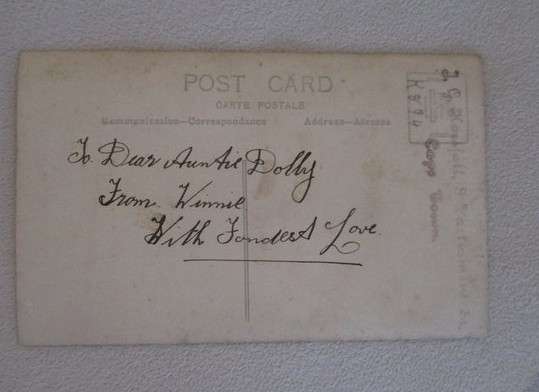 POST CARD
CARTE POSTALE
Communication–Correspondance Address–Adresse
To Dear Auntie Dolly
From Winnie
With Fondest Love.
Cape Town